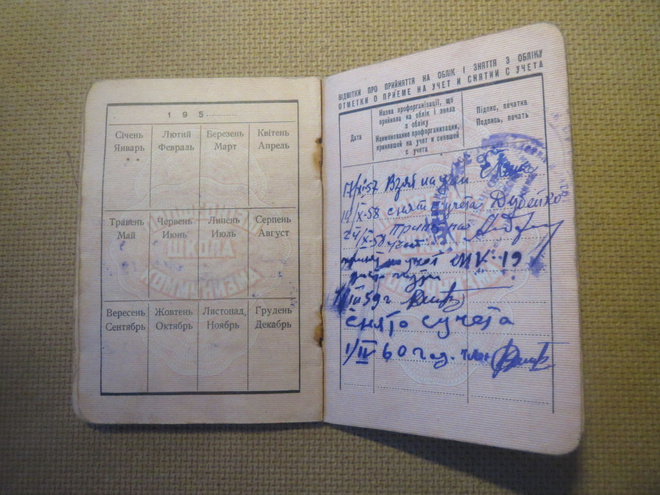 195
Січень
Январь
Лютий
Февраль
Березень
Март
Квітень
Апрель
Травень
Май
Червень
Июнь
Липень
Июль
Серпень
Август
Вересень
Сентябрь
Жовтень
Октябрь
Листопад,
Ноябрь
Грудень
Декабрь
ШКОЛА
КОММУНИЗМА
ВІДМІТКИ ПРО ПРИЙНЯТТЯ НА ОБЛІК І ЗНЯТТЯ З ОБЛІКУ
ОТМЕТКИ О ПРИЕМЕ НА УЧЕТ И СНЯТИИ С УЧЕТА
Дата
Назва профорганізації, що
прийняла на облік і зняла
з обліку
Наименование профорганизации,
принявшей на учет и снявшей
с учета
Підпис, печатка
Подпись, печать
17/XI-57 Взят на учет
14/X-58 снят с учета
24/X-58 учет
на учет МК-19
III 59г
снято с учета
1/IV 60 год.